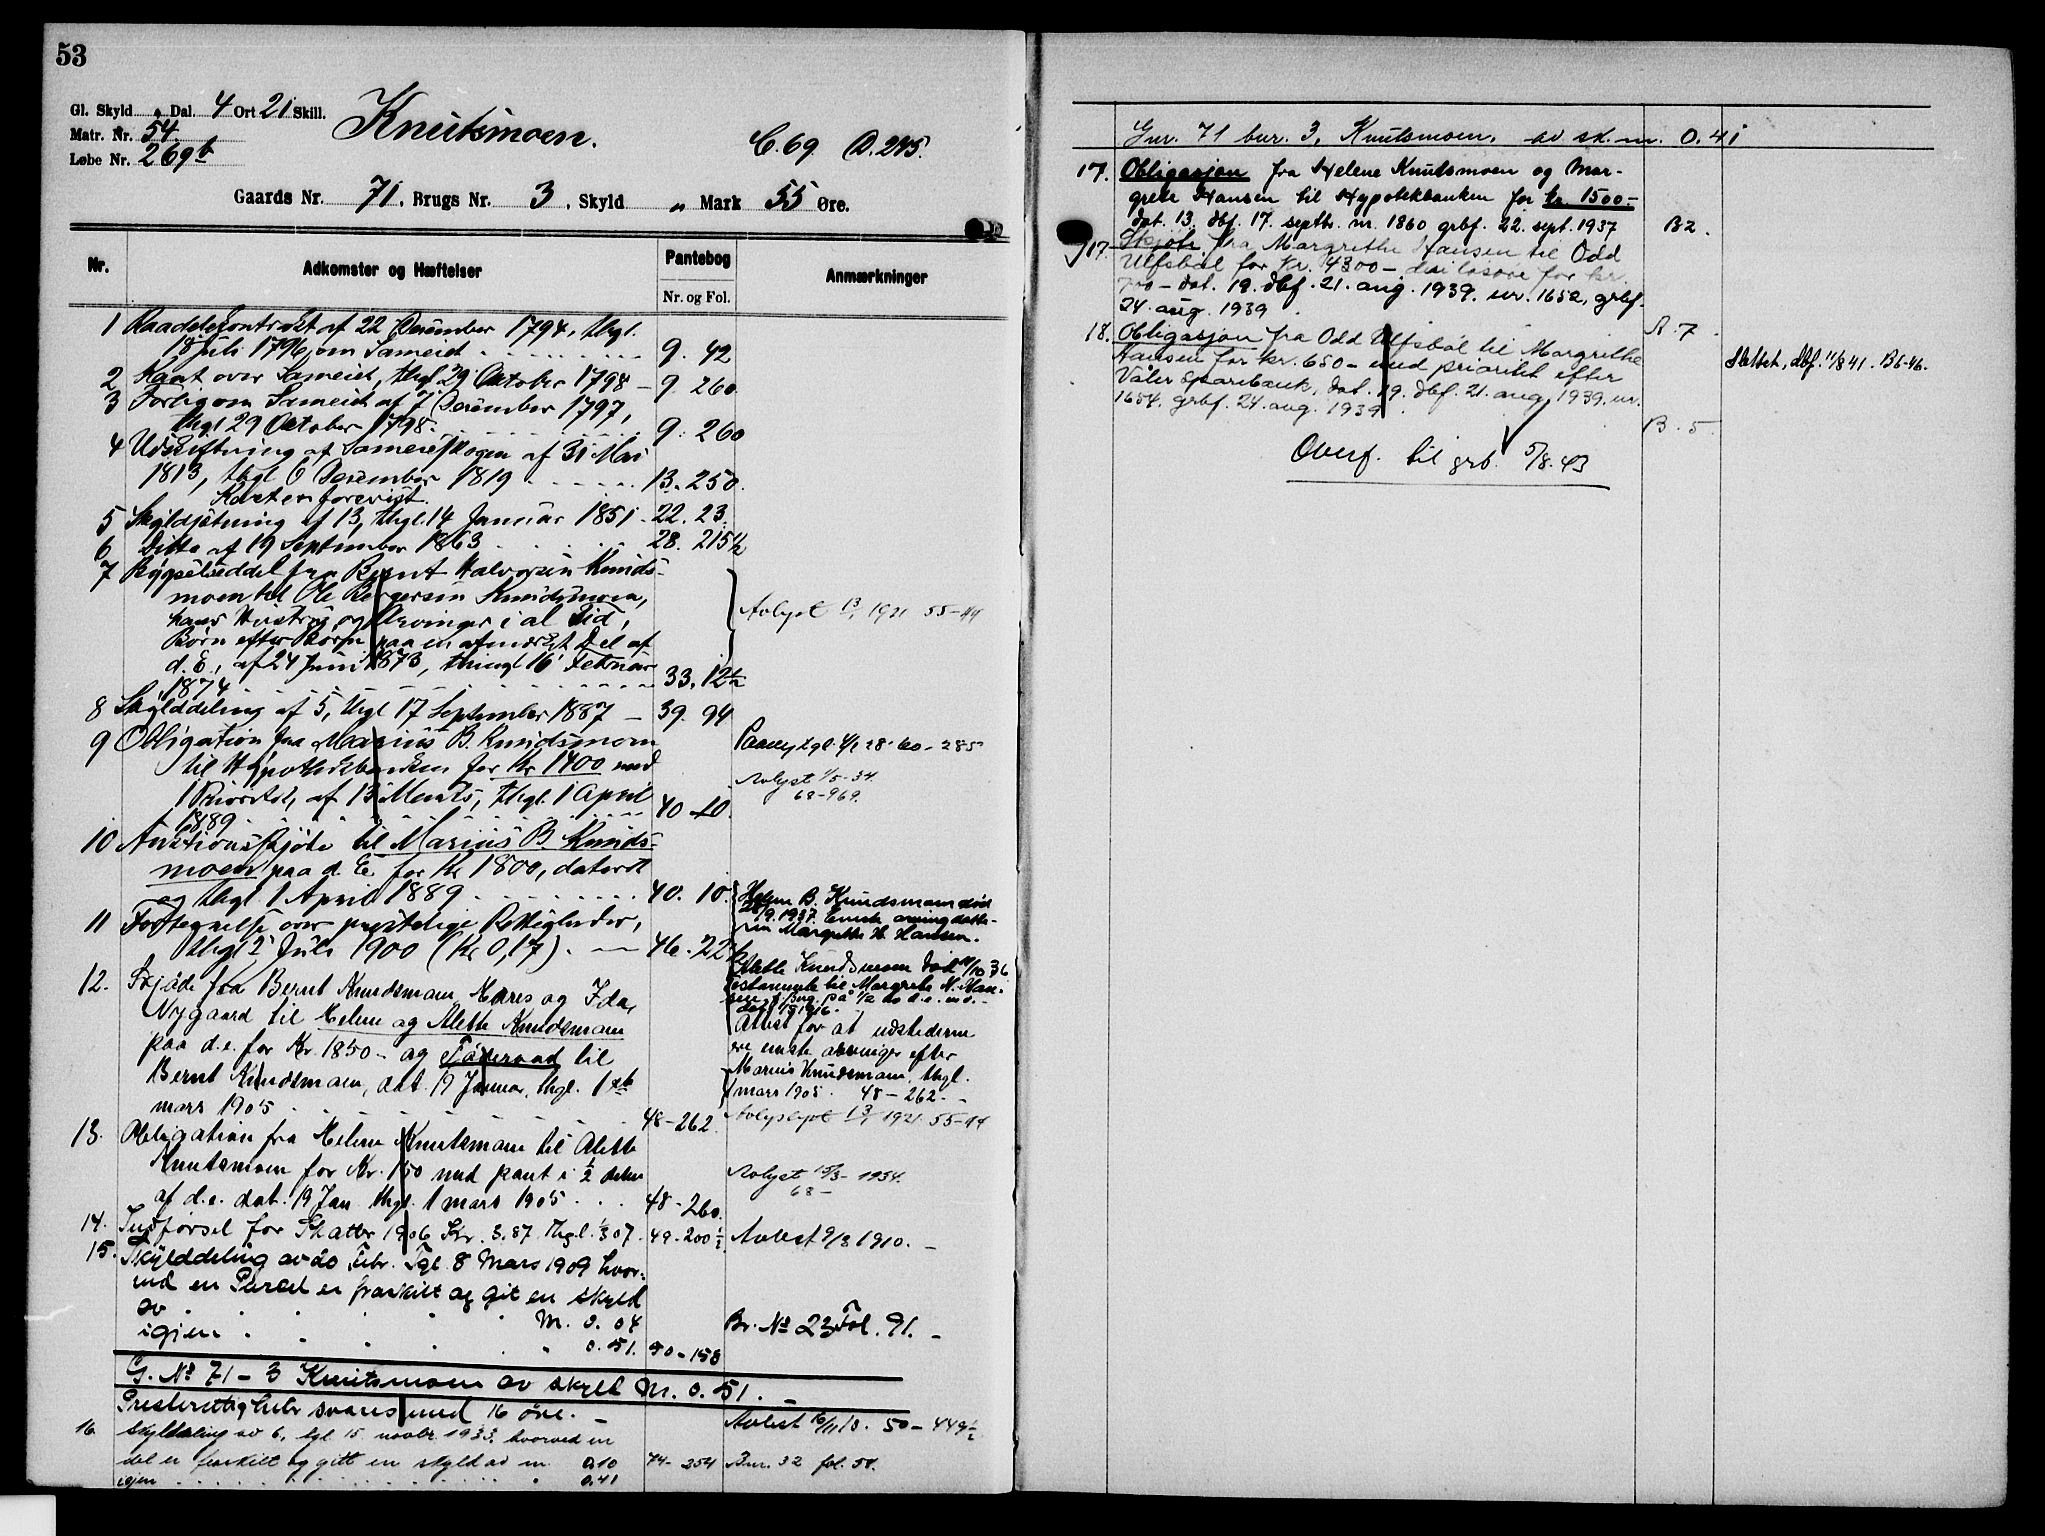 53
Gl. Skyld „ Dal. 4 Ort 21 Skill.
Matr. Nr. 54
Løbe Nr. 269b
Knutsmoen.
C. 69 D. 245.
Gaards Nr. 71, Brugs Nr. 3, Skyld „ Mark 55 Øre.
Nr.
Adkomster og Hæftelser
Pantebog
Nr. og Fol.
Anmærkninger
1 Raadelskontrakt af 22 December 1794, thgl.
18 Juli 1796, om Sameiet 9. 42
2 Kart over Sameiet, thgl. 29 Oktober 1798 — 9. 260
3 Forlig om Sameiet af 7 December 1797,
thgl 29 October 1798. 9. 260
4 Udskiftning af Sameieskogen af 31 Mai
1813, thgl 6 December 1819 13. 250.
Kartet er forevist.
5 Skyldsætning af 13, thgl. 14 Januar 1851. 22. 23.
6 Ditto af 19 September 1863 28. 215½
7 Bygselseddel fra Bernt Halvorsen Knuds-
moen til Ole Bergersen Knudsmoen,
hans Hustru og Arvinger i al Tid,
Børn efter Børn paa en afmærket Del af
d. E., af 24 Juni 1873, thingl 16 Februar
1874 33. 12½
Avlyst 13/1 1921 55-44
8 Skylddeling af 5, thgl 17 September 1887 — 39. 94
9 Obligation fra Marius B. Knudsmoen
til Hypothekbanken for Kr 1400 med
1 Prioritet, af 13 Marts, thgl. 1 April
1889 40 10.
Paany tgl. 4/1 28. 60-285
Avlyst 1/5-34.
68-969.
10 Auktionsskjøde til Marius B. Knuds-
moen paa d. E. for Kr 1800, dateret
og thgl 1 April 1889 40. 10.
11 Fortegnelse over prestelige Rettigheder,
thgl 2 Juli 1900 (Kr 0,17). — 46. 22½
Helene B. Knudsmoen død
/9.1937. Eneste arving datte-
ren Margrethe H. Hansen.
12. Skjøde fra Bernt Knudsmoen, Mares og Ida
Nygaard til Helene og Alette Knudsmoen
paa d.e. for Kr. 1850 - og Føderaad til
Bernt Knudsmoen, dat. 19 Januar, thgl. 1ste
mars 1905 48-262.
Alette Knudsmoen død 11/10 36
Testamente til Margrete H. Han-
sen
Attest for at udstederne
ere eneste arvinger efter
Marius Knudsmoen, thgl.
1 mars 1905. 48-262.-
Avlyst 13/1 1921. 55-44
13. Obligation fra Helene Knutsmoen til Alette
Knutsmoen for Kr. 150 med pant i ½ delen
af d.e. dat. 19 Jan thgl. 1 mars 1905 48-260.
Avlyst 15/3-1934.
68-
14. Indførsel for Skatter 1906 Kr. 3.87. Thgl. 1/3 07. 49-200½ Avlest 9/3 1910. -
15. Skylddeling av 20 Febr. Tgl. 8 Mars 1909 hvor-
ved en Parcel er fraskilt og git en skyld
av M. 0.04
igjen 0.51. 50-158
Br. No 23 Fol. 91. -
G. No 71-3 Knutsmoen av skyld M. 0.51. -
Presterettigheder svares med 16 øre. - Avlest 16/11 18. 50-449½
16 Skylddeling av 6, tgl. 15 novbr. 1933, hvorved en
del er fraskilt og gitt en skyld av m 0.10 74-254 Bnr. 32 fol. 58.
igjen 0.41
Gnr. 71 bnr. 3, Knutsmoen, av sk. m. 0.41
17. Obligasjon fra Helene Knutsmoen og Mar-
grete Hansen til Hypotekbanken for kr. 1500.-
dat. 13. dbf. 17. septbr. nr. 1860 grbf. 22. sept. 1937 B 2.
17. Skjøte fra Margrethe Hansen til Odd
Ulfsbøl for kr. 4300 - derav løsøre for kr.
700 - dat. 19. dbf. 21. aug. 1939. nr. 1652, grbf.
24. aug. 1939. A. 7.
18. Obligasjon fra Odd Ulfsbøl til Margrethe
Hansen for kr. 650 - med prioritet efter
Våler sparebank, dat. 19. dbf. 21. aug. 1939. nr.
1654. grbf. 24. aug. 1939. B. 5.
Slettet, dbf. 11/8 41. B6-46.
Overf. til grb. 5/8.43